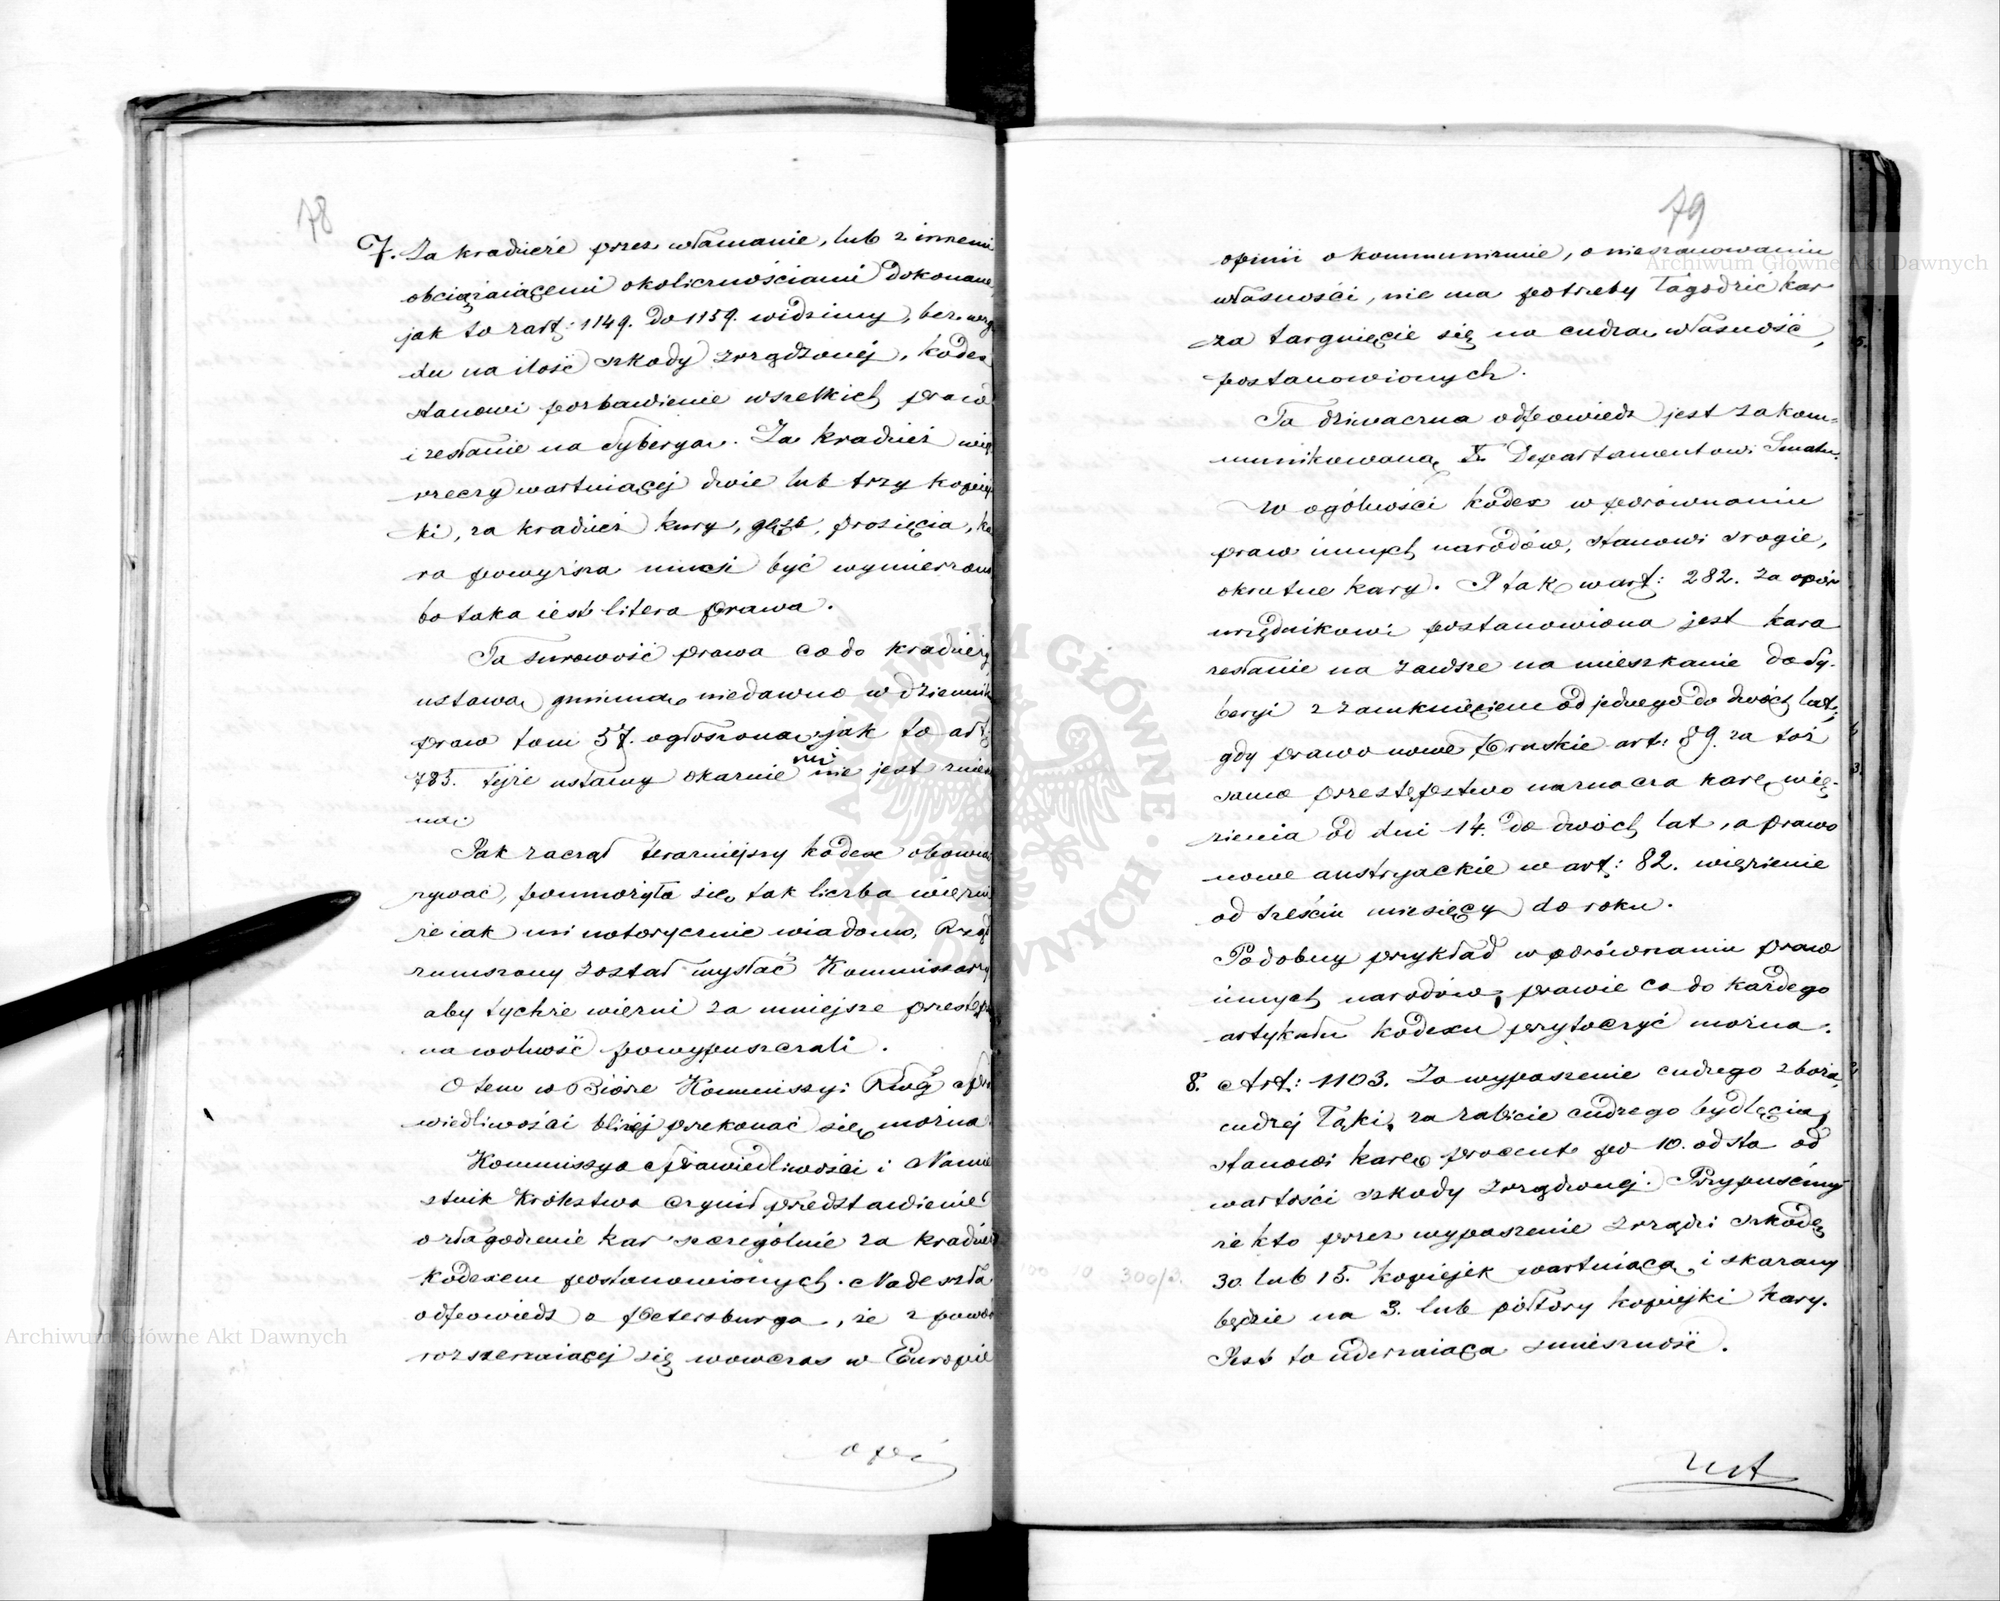 78
7. Za kradzieże przez włamanie, lub z innemi
obciążaiącemi okolicznościami dokonane,
jak to z art: 1149. do 1159. widzimy, bez wzg
du na ilość szkody zrządzonéj, kodex
stanowi pozbawienie wszelkich praw
i zesłanie na Syberyą. Za kradzież więc
rzeczy wartuiącej dwie lub trzy kopiej
ki, za kradzież kury, gęsi, prosięcia, ka
ra powyższa musi być wymierzona
bo taka iest litera prawa.
Ta surowość prawa co do kradzieży
ustawą gminną niedawno w dzienniku
praw tom 57. ogłoszoną, jak to art:
785. tejże ustawy okarnie nie jest zmien
ną.
Jak zaczął teraźniejszy kodex obowią
zywać, pomnożyła się tak liczba więźni
że iak mi notorycznie wiadomo, Rząd
zmuszony został wysłać Kommissarzy
aby tychże więźni za mniejsze przestęp
na wolność powypuszczali.
O tem w Biórze Kommissyi Rząd: Spra
wiedliwości bliżéj przekonać się można.
Kommissya Sprawiedliwości i Namie
stnik Królestwa czynił przedstawienie
o złagodzenie kar szczególnie za kradzież
kodexem postanowionych. Nadeszła
odpowiedź z Petersburga, że z powod
rozszerzaiącej się wówczas w Europie
opi
Archiwum Główne Akt Dawnych
79
opinii o kommunizmie, o nieszanowaniu
własności, nie ma potrzeby łagodzić kar
za targnięcie się na cudzą własność,
postanowionych.
Ta dziwaczna odpowiedź jest zakom=
munikowaną X. Departamentowi Senatu.
W ogólności kodex w porównaniu
praw innych narodów, stanowi srogie,
okrutne kary. I tak w art: 282. za opór
urzędnikowi postanowiona jest kara
zesłanie na zawsze na mieszkanie do Sy-
beryi z zamknięciem od jednego do dwóch lat;
gdy prawo nowe Pruskie art: 89. za toż
samo przestępstwo naznacza karę wię-
zienia od dni 14. do dwóch lat, a prawo
nowe austryackie w art: 82. więzienie
od sześciu miesięcy do roku.
Podobny przykład w porównaniu praw
innych narodów, prawie co do każdego
artykułu kodexu przytoczyć można.
8. Art: 1103. Za wypaszenie cudzego zboża,
cudzej łąki, za zabicie cudzego bydlęcia,
stanowi karę procent po 10. od sta od
wartości szkody zrządzonej. Przypuśćmy
że kto przez wypaszenie zrządzi szkodę
30. lub 15. kopiejek wartuiącą, i skarany
będzie na 3. lub półtory kopiejki kary.
Jest to uderzaiąca śmieszność.
300/3.
Ust
Archiwum Główne Akt Dawnych
ARCHIWUM GŁÓWNE AKT DAWNYCH